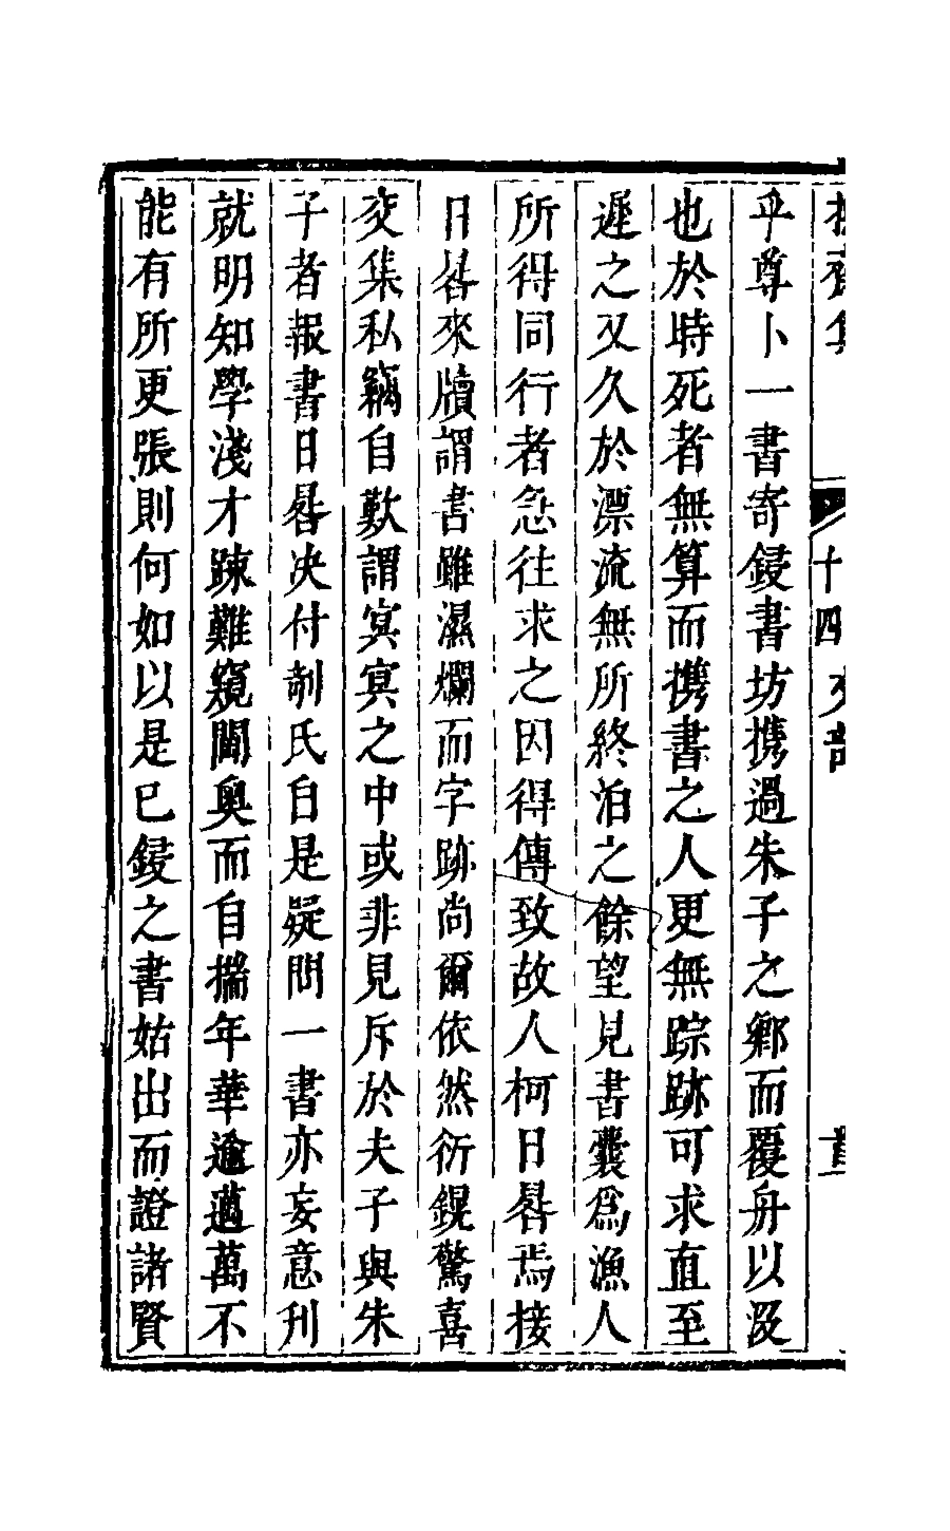 十四
乎尊卜一書寄鋟書坊携過朱子之鄉而覆舟以沒
也於時死者無算而携書之人更無踪跡可求直至
遲之又久於漂流無所終泊之餘望見書囊爲漁人
所得同行者急往求之因得傳致故人柯日晷焉接
日晷來牘謂書雖濕爛而字跡尚爾依然衍錕驚喜
交集私竊自歎謂冥冥之中或非見斥於夫子與朱
子者報書日晷决付剞氏自是疑問一書亦妄意刊
就明知學淺才踈難窺閫奥而自揣年華逾邁萬不
能有所更張則何如以是已鋟之書姑出而證諸賢